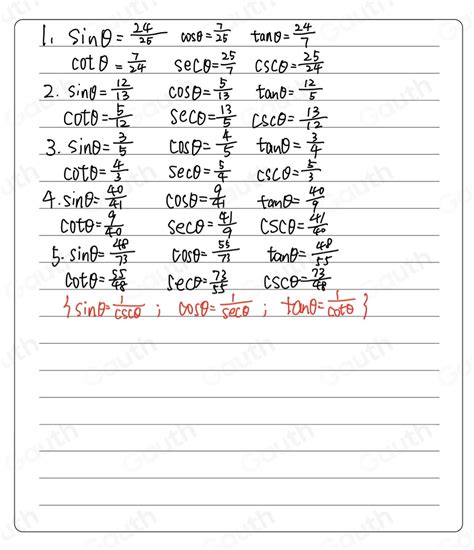 1. sinθ = 24/25 cosθ = 7/25 tanθ = 24/7
cotθ = 7/24 secθ = 25/7 cscθ = 25/24
2. sinθ = 12/13 cosθ = 5/13 tanθ = 12/5
cotθ = 5/12 secθ = 13/5 cscθ = 13/12
3. sinθ = 3/5 cosθ = 4/5 tanθ = 3/4
cotθ = 4/3 secθ = 5/4 cscθ = 5/3
4. sinθ = 40/41 cosθ = 9/41 tanθ = 40/9
cotθ = 9/40 secθ = 41/9 cscθ = 41/40
5. sinθ = 48/73 cosθ = 55/73 tanθ = 48/55
cotθ = 55/48 secθ = 73/55 cscθ = 73/48
{ sinθ = 1/cscθ ; cosθ = 1/secθ ; tanθ = 1/cotθ }
Gauth